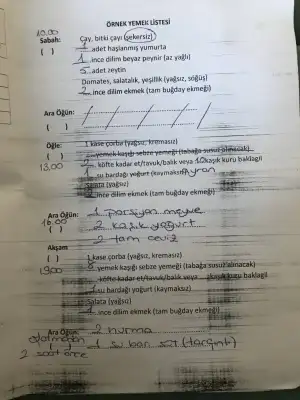 ÖRNEK YEMEK LİSTESİ
10.00
Sabah: Çay, bitki çayı (şekersiz)
( ) 1 adet haşlanmış yumurta
1 ince dilim beyaz peynir (az yağlı)
5 adet zeytin
Domates, salatalık, yeşillik (yağsız, söğüş)
2 ince dilim ekmek (tam buğday ekmeği)
Ara Öğün:
( )
Öğle: 1 kase çorba (yağsız, kremasız)
( ) yemek kaşığı sebze yemeği (tabağa susuz alınacak)
13.00 köfte kadar et/tavuk/balık veya 10 kaşık kuru baklagil
1 su bardağı yoğurt (kaymaksız) Ayran
Salata (yağsız)
ince dilim ekmek (tam buğday ekmeği)
Ara Öğün: 1 porsiyon meyve
16.00 2 kaşık yoğurt
( ) 2 tam ceviz
Akşam:
( ) 1 kase çorba (yağsız, kremasız)
19.00 yemek kaşığı sebze yemeği (tabağa susuz alınacak)
köfte kadar et/tavuk/balık veya kaşık kuru baklagil
su bardağı yoğurt (kaymaksız)
Salata (yağsız)
ince dilim ekmek (tam buğday ekmeği)
Ara Öğün: 2 hurma
( ) 1 su bar süt (tarçınlı)
2 saat önce